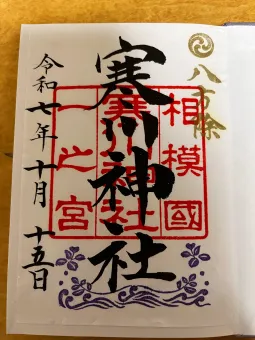 八方除
相模國
寒川神社
寒川神社
一之宮
令和七年十月十五日